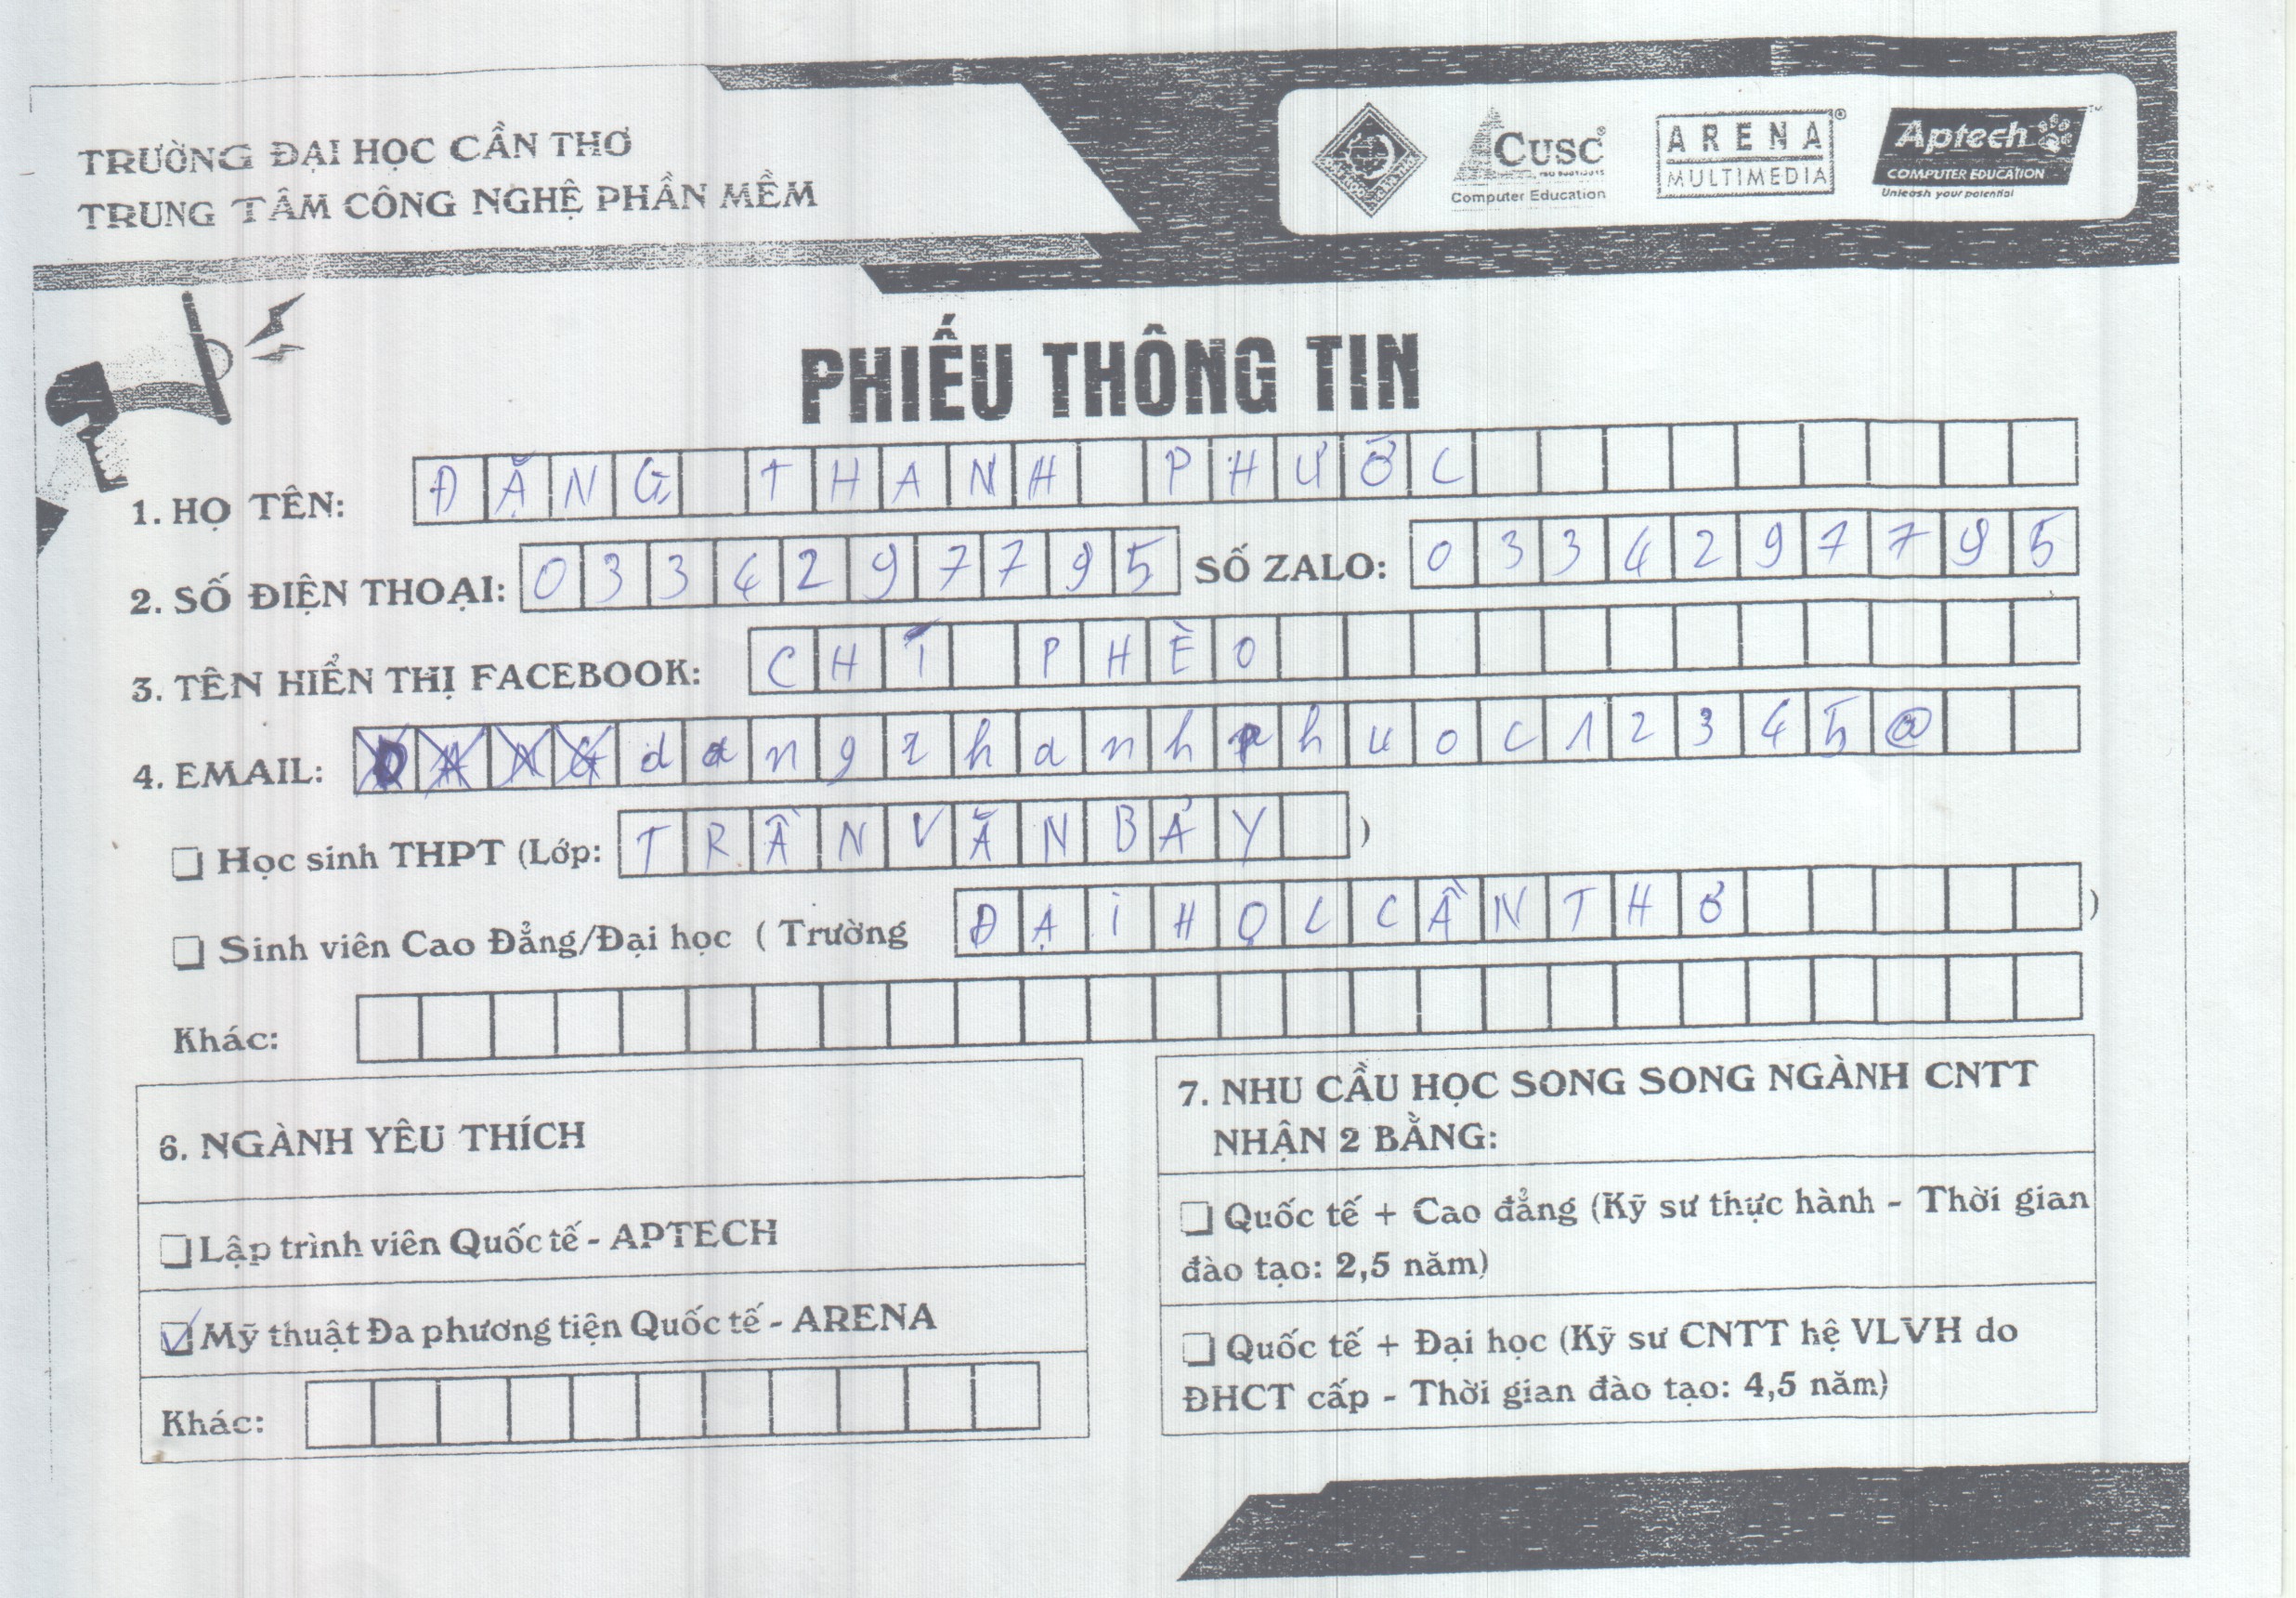 TRƯỜNG ĐẠI HỌC CẦN THƠ
TRUNG TÂM CÔNG NGHỆ PHẦN MỀM
CUSC
Computer Education
ARENA
MULTIMEDIA
Aptech
COMPUTER EDUCATION
Unleash your potential
PHIẾU THÔNG TIN
1. HỌ TÊN: ĐẶNG THANH PHƯỚC
2. SỐ ĐIỆN THOẠI: 0334297795 SỐ ZALO: 0334297795
3. TÊN HIỂN THỊ FACEBOOK: CHÍ PHÈO
4. EMAIL: dangthanhphuoc12345@
Học sinh THPT (Lớp: TRẦN VĂN BẢY )
Sinh viên Cao Đẳng/Đại học ( Trường ĐẠI HỌC CẦN THƠ )
Khác:
6. NGÀNH YÊU THÍCH
Lập trình viên Quốc tế - APTECH
Mỹ thuật Đa phương tiện Quốc tế - ARENA
Khác:
7. NHU CẦU HỌC SONG SONG NGÀNH CNTT
NHẬN 2 BẰNG:
Quốc tế + Cao đẳng (Kỹ sư thực hành - Thời gian
đào tạo: 2,5 năm)
Quốc tế + Đại học (Kỹ sư CNTT hệ VLVH do
ĐHCT cấp - Thời gian đào tạo: 4,5 năm)